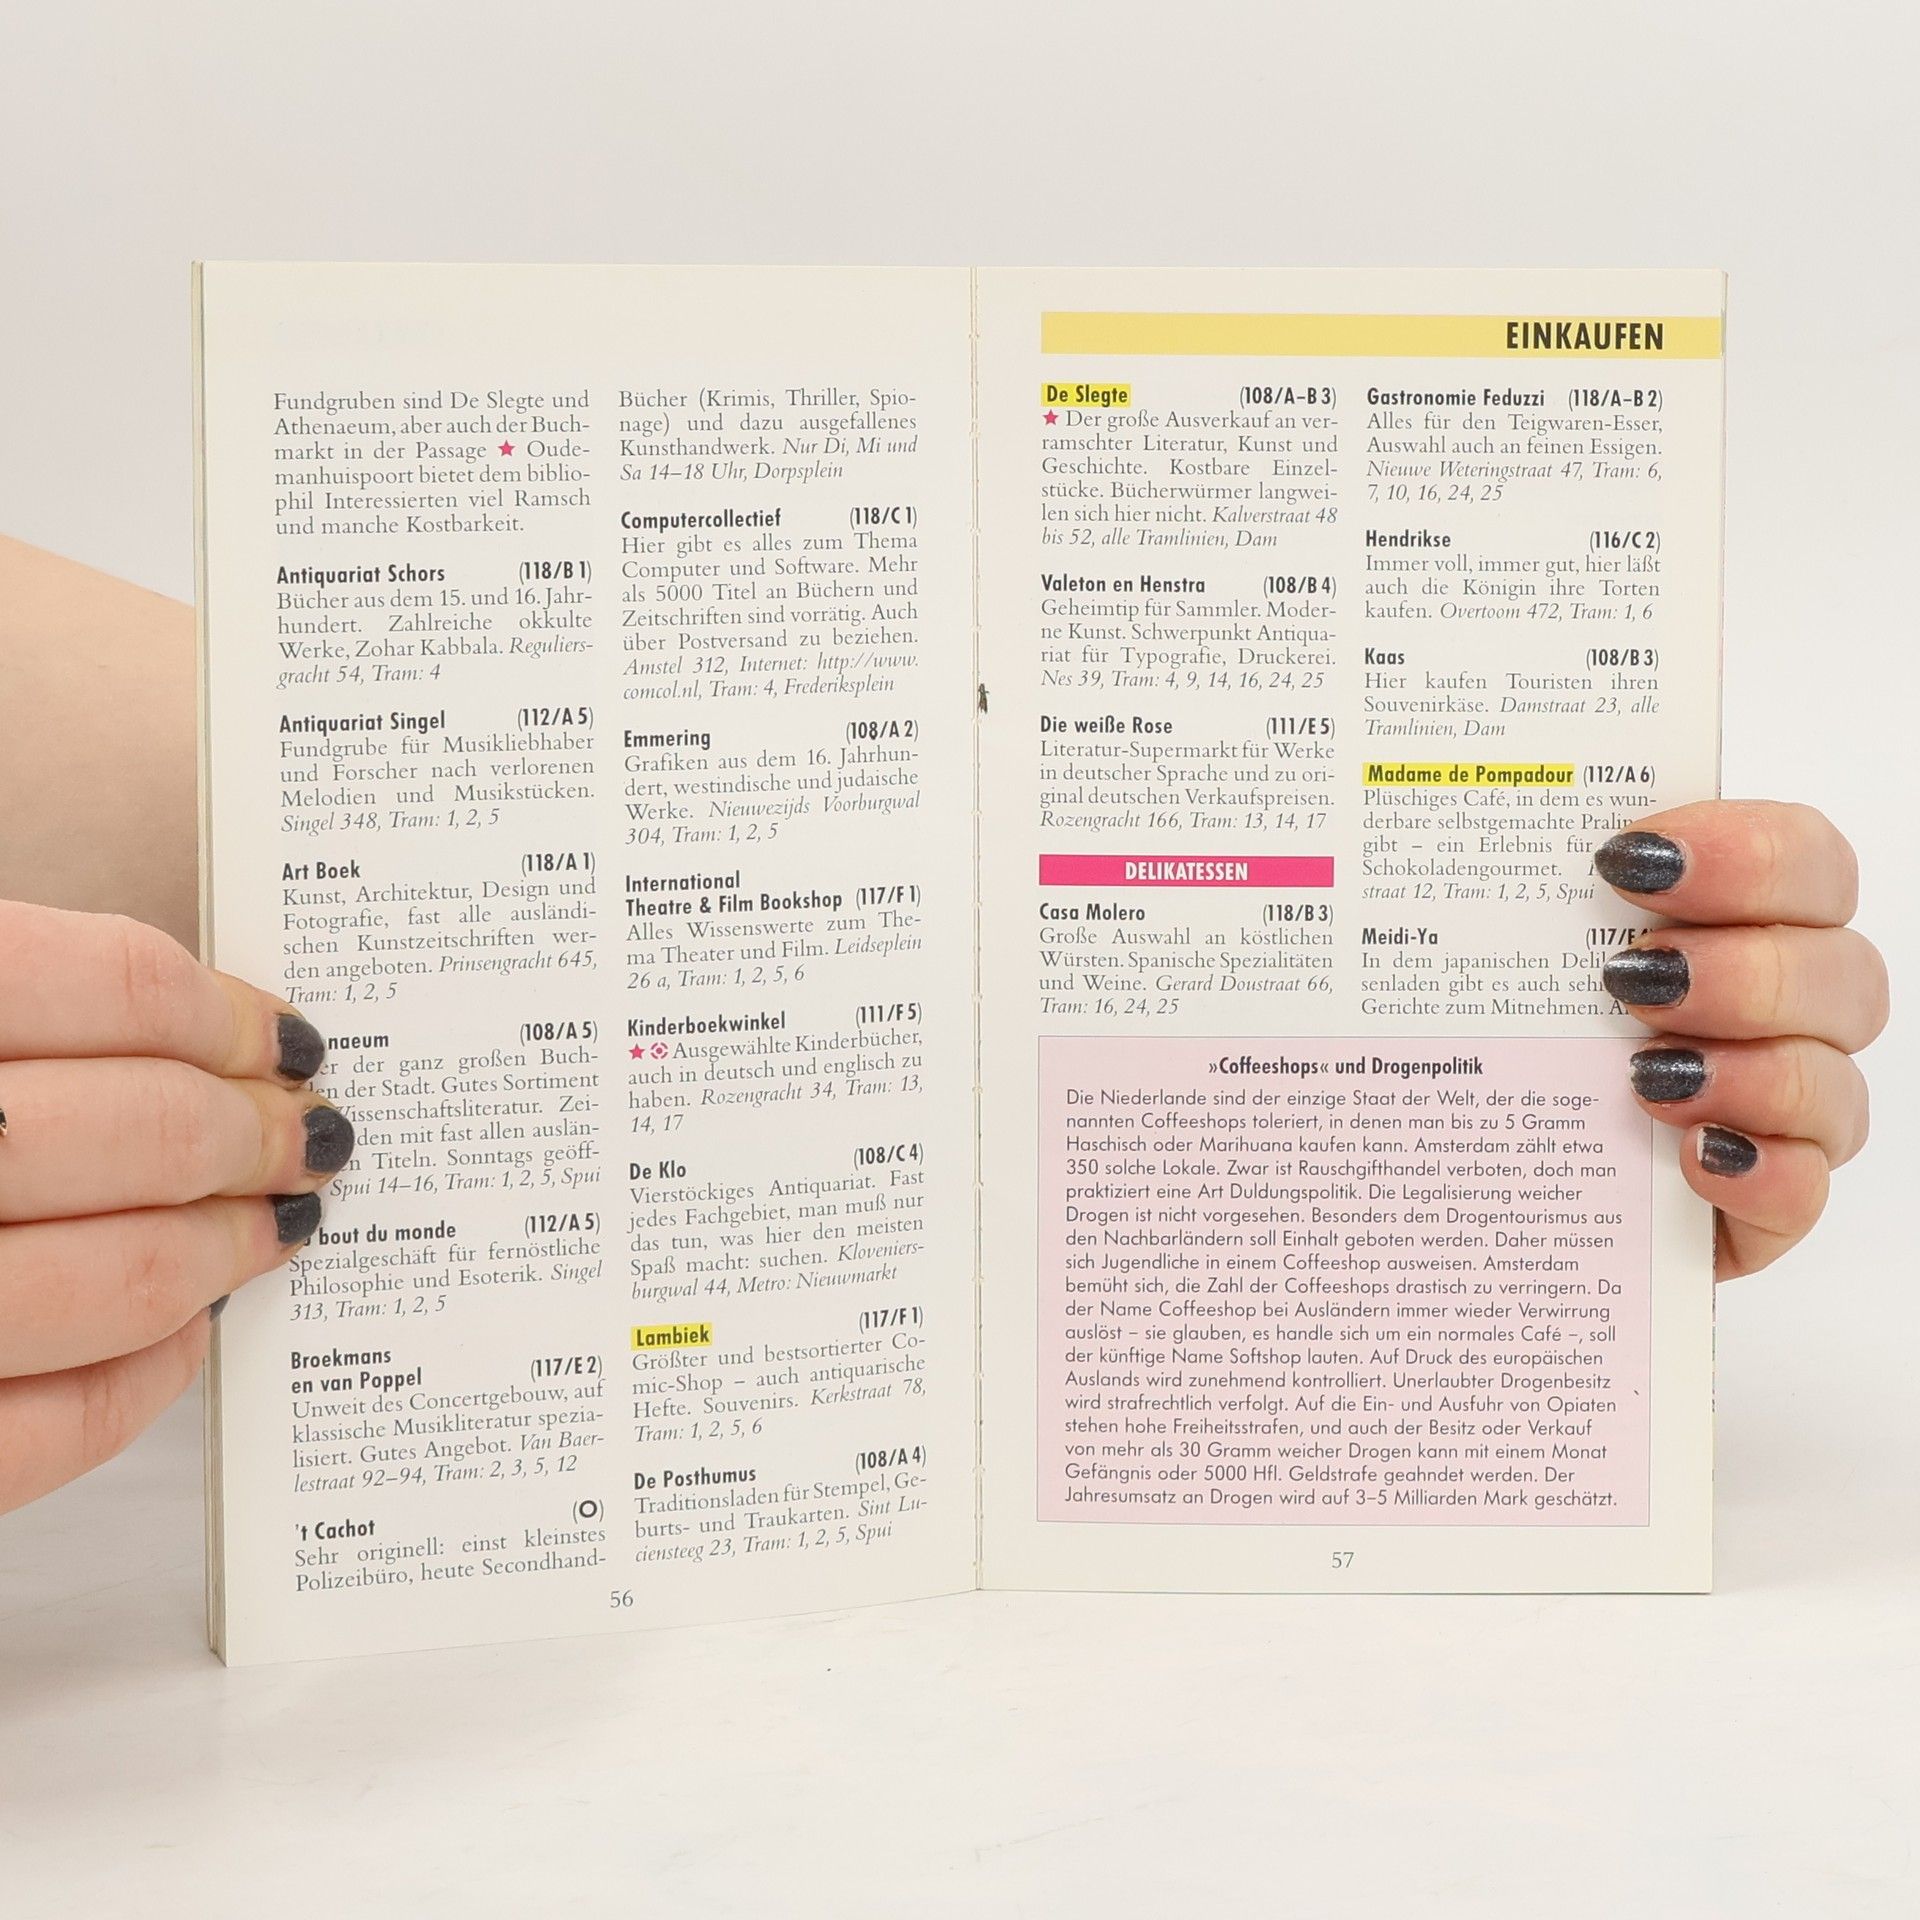 Fundgruben sind De Slegte und
Athenaeum, aber auch der Buch-
markt in der Passage ★ Oude-
manhuispoort bietet dem biblio-
phil Interessierten viel Ramsch
und manche Kostbarkeit.
Antiquariat Schors (118/B 1)
Bücher aus dem 15. und 16. Jahr-
hundert. Zahlreiche okkulte
Werke, Zohar Kabbala. Reguliers-
gracht 54, Tram: 4
Antiquariat Singel (112/A 5)
Fundgrube für Musikliebhaber
und Forscher nach verlorenen
Melodien und Musikstücken.
Singel 348, Tram: 1, 2, 5
Art Boek (118/A 1)
Kunst, Architektur, Design und
Fotografie, fast alle ausländi-
schen Kunstzeitschriften wer-
den angeboten. Prinsengracht 645,
Tram: 1, 2, 5
naeum (108/A 5)
er der ganz großen Buch-
en der Stadt. Gutes Sortiment
Wissenschaftsliteratur. Zei-
den mit fast allen auslän-
n Titeln. Sonntags geöff-
Spui 14–16, Tram: 1, 2, 5, Spui
bout du monde (112/A 5)
Spezialgeschäft für fernöstliche
Philosophie und Esoterik. Singel
313, Tram: 1, 2, 5
Broekmans
en van Poppel (117/E 2)
Unweit des Concertgebouw, auf
klassische Musikliteratur spezia-
lisiert. Gutes Angebot. Van Baer-
lestraat 92–94, Tram: 2, 3, 5, 12
't Cachot (O)
Sehr originell: einst kleinstes
Polizeibüro, heute Secondhand-
Bücher (Krimis, Thriller, Spio-
nage) und dazu ausgefallenes
Kunsthandwerk. Nur Di, Mi und
Sa 14–18 Uhr, Dorpsplein
Computercollectief (118/C 1)
Hier gibt es alles zum Thema
Computer und Software. Mehr
als 5000 Titel an Büchern und
Zeitschriften sind vorrätig. Auch
über Postversand zu beziehen.
Amstel 312, Internet: http://www.
comcol.nl, Tram: 4, Frederiksplein
Emmering (108/A 2)
Grafiken aus dem 16. Jahrhun-
dert, westindische und judaische
Werke. Nieuwezijds Voorburgwal
304, Tram: 1, 2, 5
International
Theatre & Film Bookshop (117/F 1)
Alles Wissenswerte zum The-
ma Theater und Film. Leidseplein
26 a, Tram: 1, 2, 5, 6
Kinderboekwinkel (111/F 5)
★ Ausgewählte Kinderbücher,
auch in deutsch und englisch zu
haben. Rozengracht 34, Tram: 13,
14, 17
De Klo (108/C 4)
Vierstöckiges Antiquariat. Fast
jedes Fachgebiet, man muß nur
das tun, was hier den meisten
Spaß macht: suchen. Kloveniers-
burgwal 44, Metro: Nieuwmarkt
Lambiek (117/F 1)
Größter und bestsortierter Co-
mic-Shop – auch antiquarische
Hefte. Souvenirs. Kerkstraat 78,
Tram: 1, 2, 5, 6
De Posthumus (108/A 4)
Traditionsladen für Stempel, Ge-
burts- und Traukarten. Sint Lu-
ciensteeg 23, Tram: 1, 2, 5, Spui
56
EINKAUFEN
De Slegte (108/A–B 3)
★ Der große Ausverkauf an ver-
ramschter Literatur, Kunst und
Geschichte. Kostbare Einzel-
stücke. Bücherwürmer langwei-
len sich hier nicht. Kalverstraat 48
bis 52, alle Tramlinien, Dam
Valeton en Henstra (108/B 4)
Geheimtip für Sammler. Moder-
ne Kunst. Schwerpunkt Antiqua-
riat für Typografie, Druckerei.
Nes 39, Tram: 4, 9, 14, 16, 24, 25
Die weiße Rose (111/E 5)
Literatur-Supermarkt für Werke
in deutscher Sprache und zu ori-
ginal deutschen Verkaufspreisen.
Rozengracht 166, Tram: 13, 14, 17
DELIKATESSEN
Casa Molero (118/B 3)
Große Auswahl an köstlichen
Würsten. Spanische Spezialitäten
und Weine. Gerard Doustraat 66,
Tram: 16, 24, 25
Gastronomie Feduzzi (118/A–B 2)
Alles für den Teigwaren-Esser,
Auswahl auch an feinen Essigen.
Nieuwe Weteringstraat 47, Tram: 6,
7, 10, 16, 24, 25
Hendrikse (116/C 2)
Immer voll, immer gut, hier läßt
auch die Königin ihre Torten
kaufen. Overtoom 472, Tram: 1, 6
Kaas (108/B 3)
Hier kaufen Touristen ihren
Souvenirkäse. Damstraat 23, alle
Tramlinien, Dam
Madame de Pompadour (112/A 6)
Plüschiges Café, in dem es wun-
derbare selbstgemachte Pralin
gibt – ein Erlebnis für
Schokoladengourmet.
straat 12, Tram: 1, 2, 5, Spui
Meidi-Ya (117/F
In dem japanischen Deli
senladen gibt es auch seh
Gerichte zum Mitnehmen.
»Coffeeshops« und Drogenpolitik
Die Niederlande sind der einzige Staat der Welt, der die soge-
nannten Coffeeshops toleriert, in denen man bis zu 5 Gramm
Haschisch oder Marihuana kaufen kann. Amsterdam zählt etwa
350 solche Lokale. Zwar ist Rauschgifthandel verboten, doch man
praktiziert eine Art Duldungspolitik. Die Legalisierung weicher
Drogen ist nicht vorgesehen. Besonders dem Drogentourismus aus
den Nachbarländern soll Einhalt geboten werden. Daher müssen
sich Jugendliche in einem Coffeeshop ausweisen. Amsterdam
bemüht sich, die Zahl der Coffeeshops drastisch zu verringern. Da
der Name Coffeeshop bei Ausländern immer wieder Verwirrung
auslöst – sie glauben, es handle sich um ein normales Café –, soll
der künftige Name Softshop lauten. Auf Druck des europäischen
Auslands wird zunehmend kontrolliert. Unerlaubter Drogenbesitz
wird strafrechtlich verfolgt. Auf die Ein- und Ausfuhr von Opiaten
stehen hohe Freiheitsstrafen, und auch der Besitz oder Verkauf
von mehr als 30 Gramm weicher Drogen kann mit einem Monat
Gefängnis oder 5000 Hfl. Geldstrafe geahndet werden. Der
Jahresumsatz an Drogen wird auf 3–5 Milliarden Mark geschätzt.
57